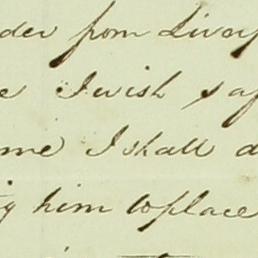 der from Liverp
e I wish saf
me I shall d
g him to place